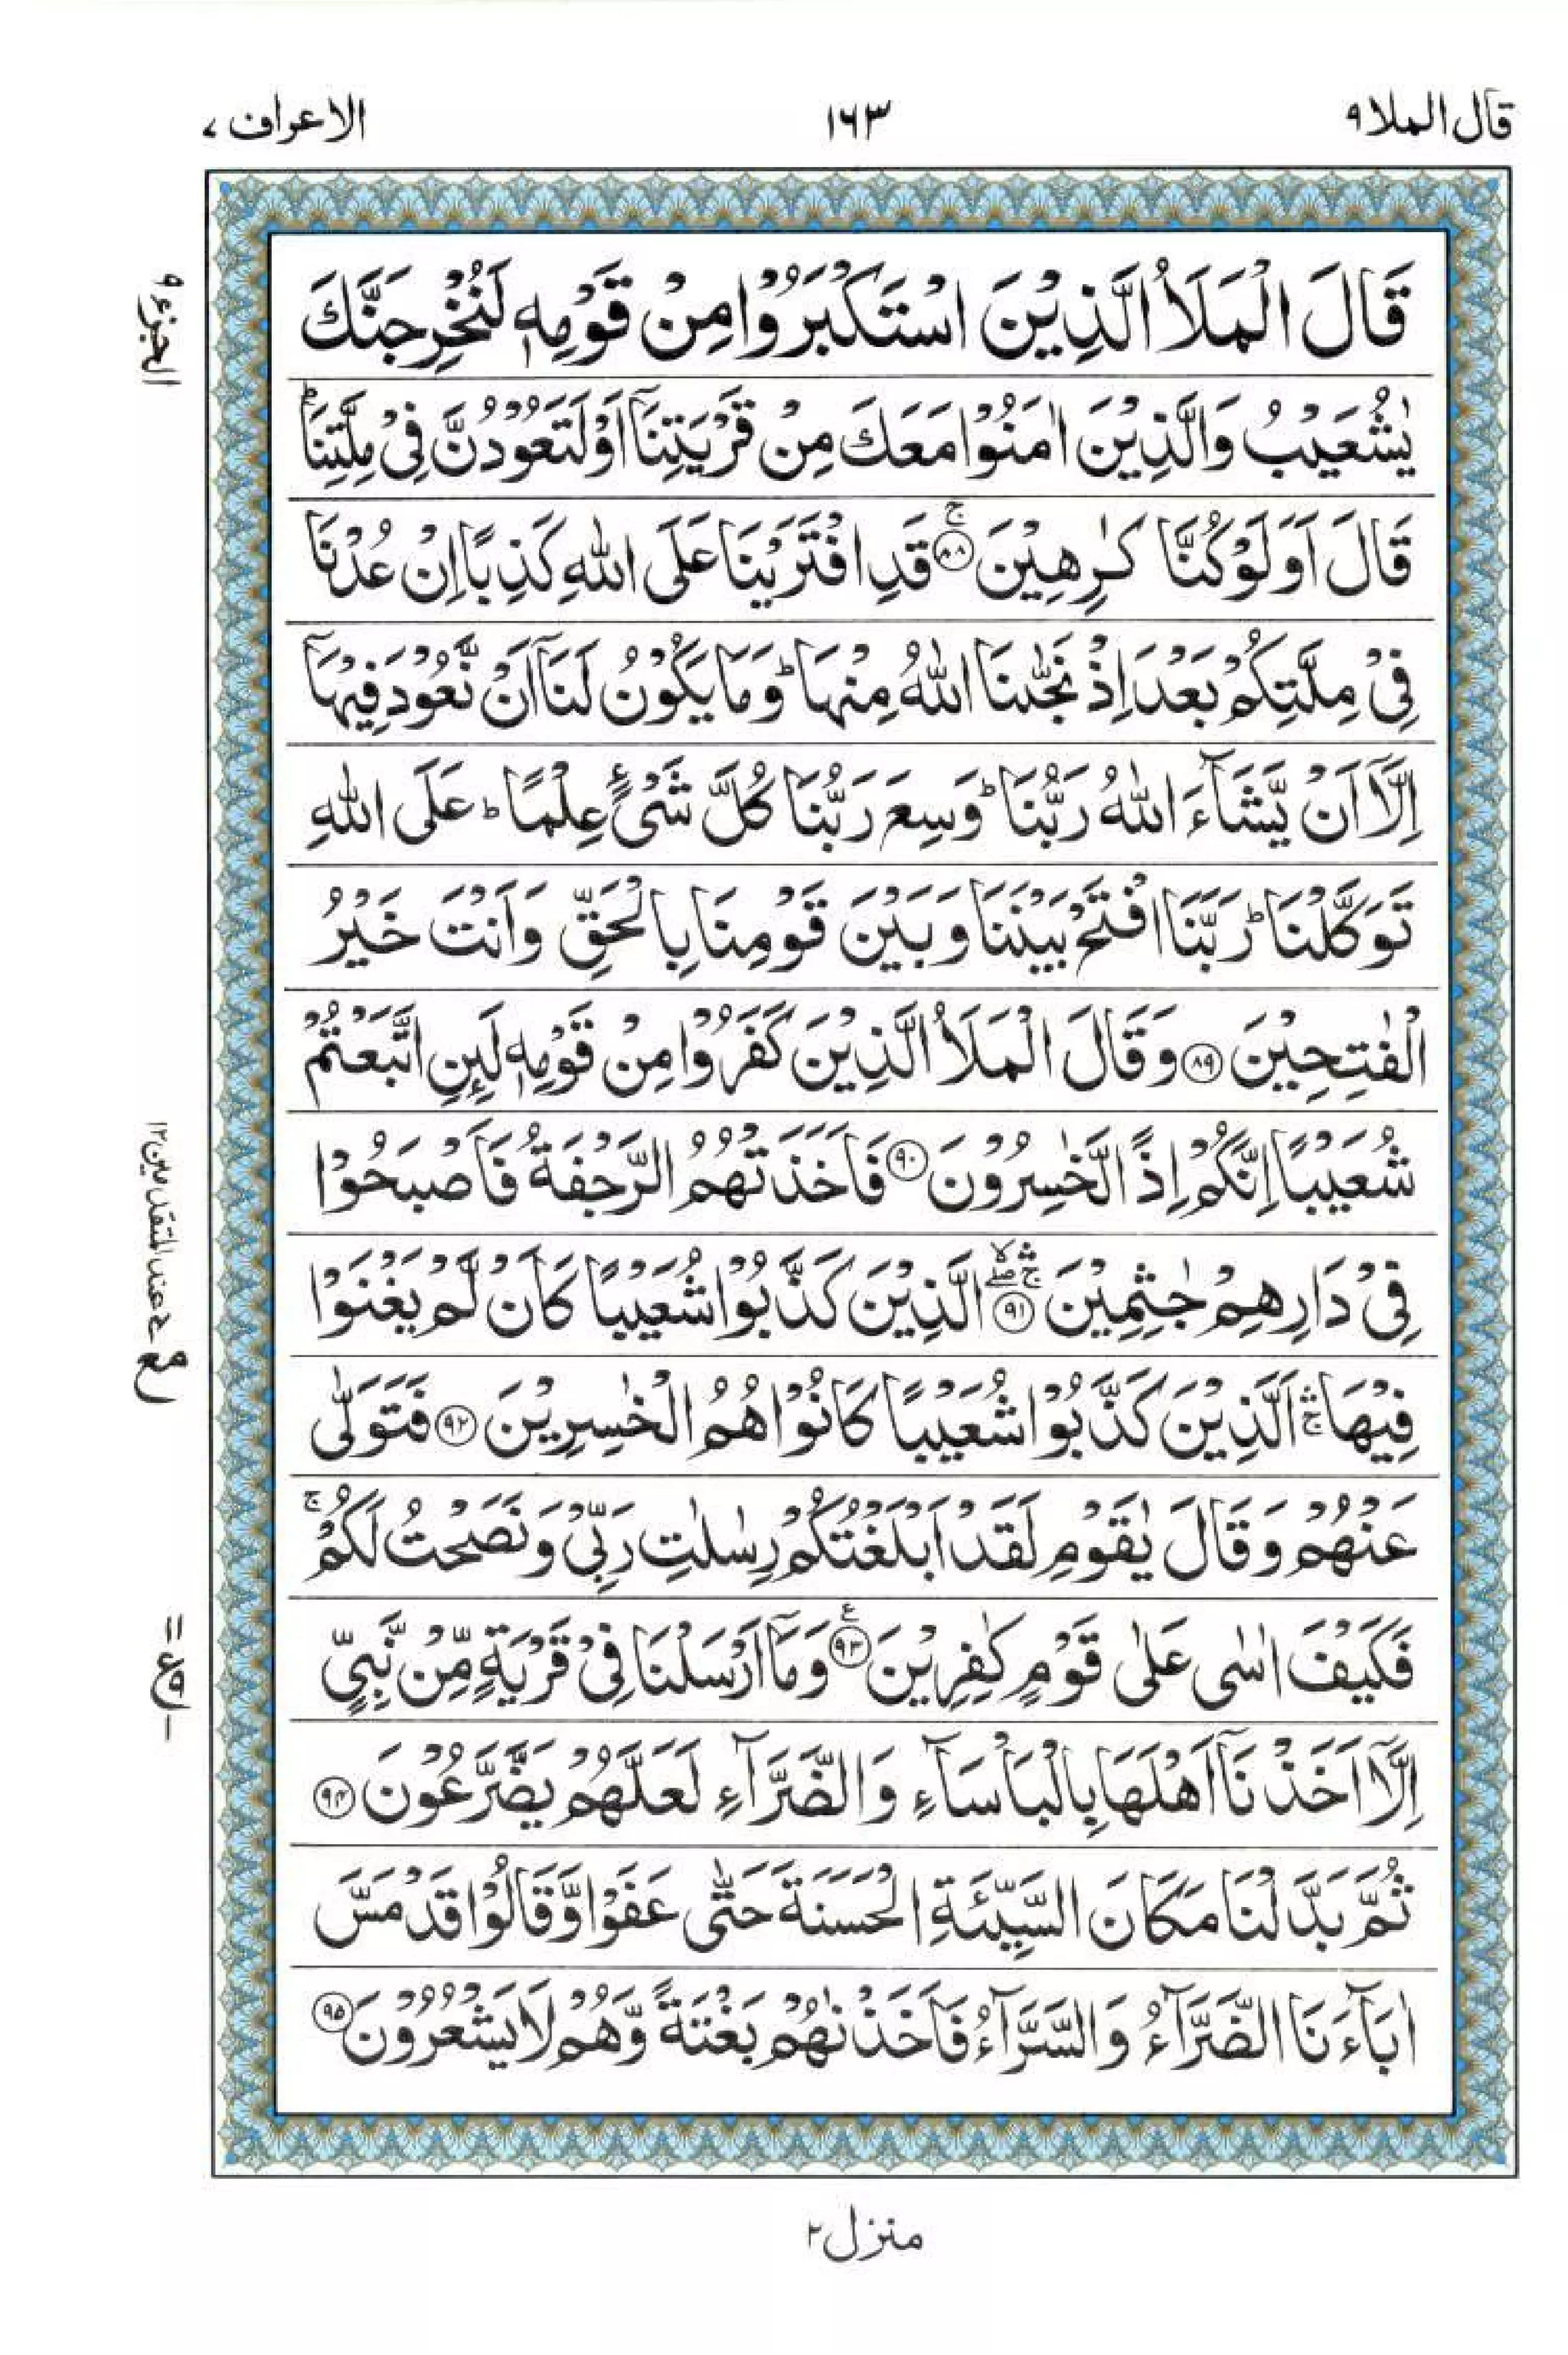 قال الملا ۹
۱۶۳
الاعراف ۷
الجزء ۹
قَالَ الْمَلَاُ الَّذِيْنَ اسْتَكْبَرُوْا مِنْ قَوْمِهٖ لَنُخْرِجَنَّكَ
يٰشُعَيْبُ وَالَّذِيْنَ اٰمَنُوْا مَعَكَ مِنْ قَرْيَتِنَآ اَوْ لَتَعُوْدُنَّ فِيْ مِلَّتِنَا ؕ
قَالَ اَوَلَوْ كُنَّا كٰرِهِيْنَ ۚ‏﴿۸۸﴾ قَدِ افْتَرَيْنَا عَلَى اللّٰهِ كَذِبًا اِنْ عُدْنَا
فِيْ مِلَّتِكُمْ بَعْدَ اِذْ نَجّٰىنَا اللّٰهُ مِنْهَا ؕ وَمَا يَكُوْنُ لَنَآ اَنْ نَّعُوْدَ فِيْهَآ
اِلَّآ اَنْ يَّشَآءَ اللّٰهُ رَبُّنَا ؕ وَسِعَ رَبُّنَا كُلَّ شَيْءٍ عِلْمًا ؕ عَلَى اللّٰهِ
تَوَكَّلْنَا ؕ رَبَّنَا افْتَحْ بَيْنَنَا وَبَيْنَ قَوْمِنَا بِالْحَقِّ وَاَنْتَ خَيْرُ
الْفٰتِحِيْنَ ﴿۸۹﴾ وَقَالَ الْمَلَاُ الَّذِيْنَ كَفَرُوْا مِنْ قَوْمِهٖ لَئِنِ اتَّبَعْتُمْ
شُعَيْبًا اِنَّكُمْ اِذًا لَّخٰسِرُوْنَ ﴿۹۰﴾ فَاَخَذَتْهُمُ الرَّجْفَةُ فَاَصْبَحُوْا
فِيْ دَارِهِمْ جٰثِمِيْنَ ﴿۹۱﴾ الَّذِيْنَ كَذَّبُوْا شُعَيْبًا كَاَنْ لَّمْ يَغْنَوْا
فِيْهَا ۛۚ اَلَّذِيْنَ كَذَّبُوْا شُعَيْبًا كَانُوْا هُمُ الْخٰسِرِيْنَ ﴿۹۲﴾ فَتَوَلّٰى
عَنْهُمْ وَقَالَ يٰقَوْمِ لَقَدْ اَبْلَغْتُكُمْ رِسٰلٰتِ رَبِّيْ وَنَصَحْتُ لَكُمْ ۚ
فَكَيْفَ اٰسٰى عَلٰى قَوْمٍ كٰفِرِيْنَ ﴿۹۳﴾ وَمَآ اَرْسَلْنَا فِيْ قَرْيَةٍ مِّنْ نَّبِيٍّ
اِلَّآ اَخَذْنَآ اَهْلَهَا بِالْبَاْسَآءِ وَالضَّرَّآءِ لَعَلَّهُمْ يَضَّرَّعُوْنَ ﴿۹۴﴾
ثُمَّ بَدَّلْنَا مَكَانَ السَّيِّئَةِ الْحَسَنَةَ حَتّٰى عَفَوْا وَّقَالُوْا قَدْ مَسَّ
اٰبَآءَنَا الضَّرَّآءُ وَالسَّرَّآءُ فَاَخَذْنٰهُمْ بَغْتَةً وَّهُمْ لَا يَشْعُرُوْنَ ﴿۹۵﴾
عند المتقدمين ۱۲
منزل ۲